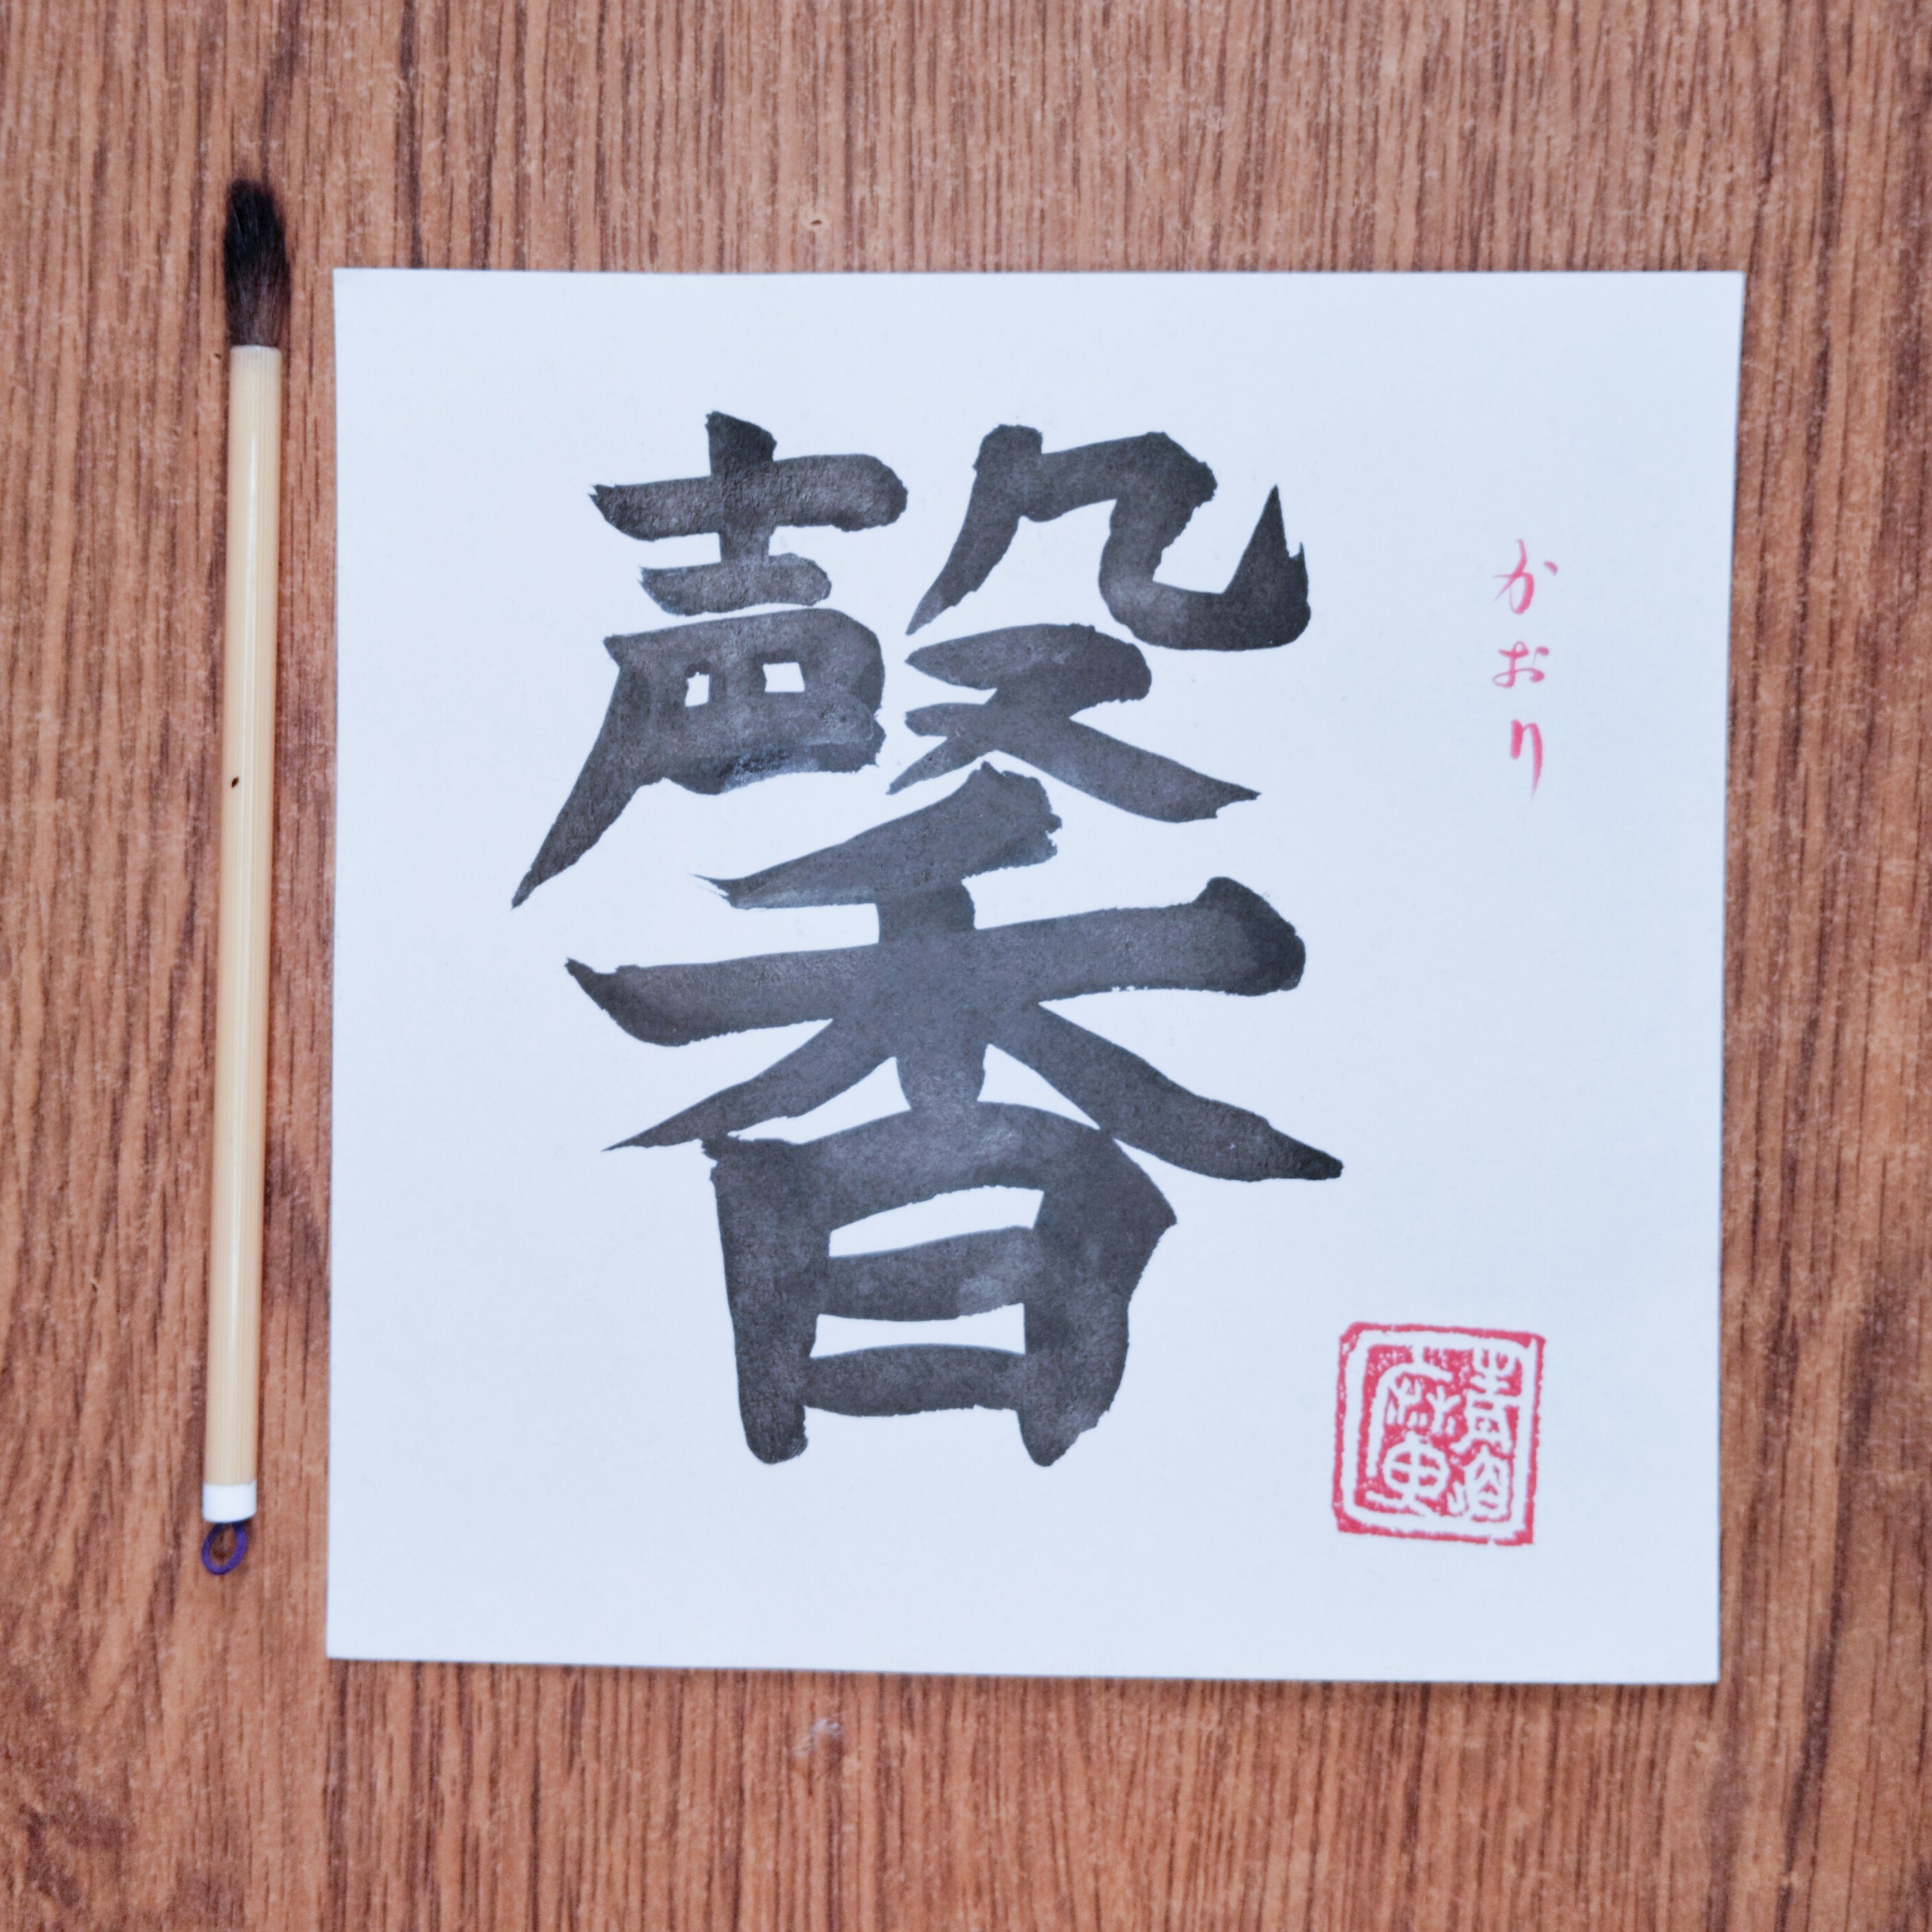 馨
かおり